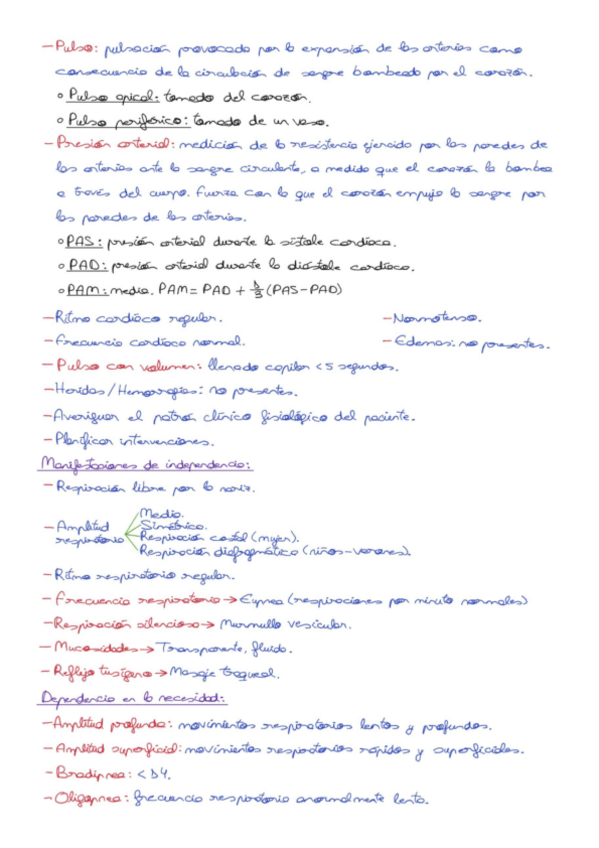 - Pulso: pulsación provocada por la expansión de las arterias como
consecuencia de la circulación de sangre bombeada por el corazón.
o Pulso apical: tomado del corazón.
o Pulso periférico: tomado de un vaso.
- Presión arterial: medición de la resistencia ejercida por las paredes de
las arterias ante la sangre circulante, a medida que el corazón la bombea
a través del cuerpo. Fuerza con la que el corazón empuja la sangre por
las paredes de las arterias.
o PAS: presión arterial durante la sístole cardíaca.
o PAD: presión arterial durante la diástole cardíaca.
o PAM: media. PAM = PAD + 1/3 (PAS - PAD)
- Ritmo cardíaco regular. - Normotenso.
- Frecuencia cardíaca normal. - Edemas: no presentes.
- Pulso con volumen: llenado capilar < 5 segundos.
- Heridas / Hemorragias: no presentes.
- Averiguar el patrón clínico fisiológico del paciente.
- Planificar intervenciones.
Manifestaciones de independencia:
- Respiración libre por la nariz.
- Amplitud respiratoria
Media.
Simétrica.
Respiración costal (mujer).
Respiración diafragmática (niños-varones).
- Ritmo respiratorio regular.
- Frecuencia respiratoria → Eupnea (respiraciones por minuto normales)
- Respiración silenciosa → Murmullo vesicular.
- Mucosidades → Transparente, fluida.
- Reflejo tusígeno → Masaje traqueal.
Dependencia en la necesidad:
- Amplitud profunda: movimientos respiratorios lentos y profundos.
- Amplitud superficial: movimientos respiratorios rápidos y superficiales.
- Bradipnea: < 14.
- Oligopnea: frecuencia respiratoria anormalmente lenta.